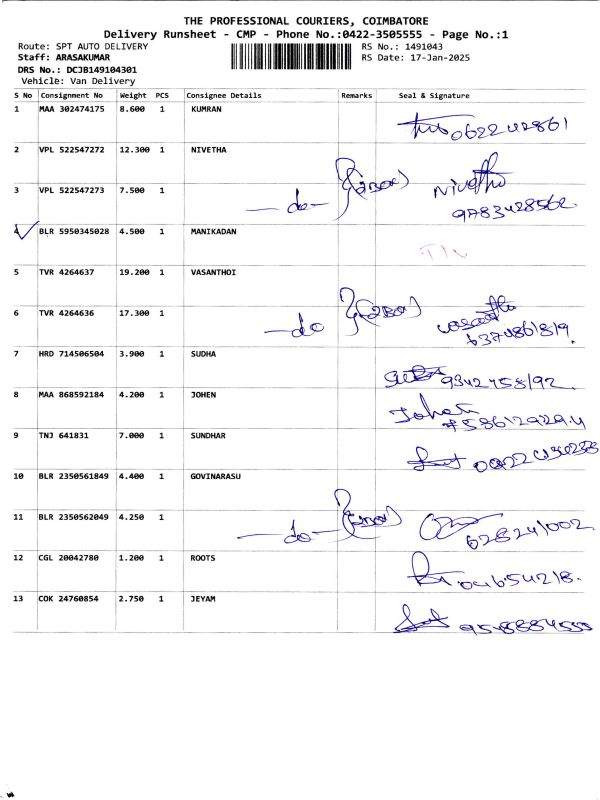 THE PROFESSIONAL COURIERS, COIMBATORE
Delivery Runsheet - CMP - Phone No.:0422-3505555 - Page No.:1
Route: SPT AUTO DELIVERY
RS No.: 1491043
Staff: ARASAKUMAR
RS Date: 17-Jan-2025
DRS No.: DCJB149104301
Vehicle: Van Delivery
S No Consignment No Weight PCS Consignee Details Remarks Seal & Signature
1 MAA 302474175 8.600 1 KUMRAN
2 VPL 522547272 12.300 1 NIVETHA
Nivetha
3 VPL 522547273 7.500 1 -do-
9783428562
4 BLR 5950345028 4.500 1 MANIKADAN
5 TVR 4264637 19.200 1 VASANTHOI
6 TVR 4264636 17.300 1 -do
7 HRD 714506504 3.900 1 SUDHA
8 MAA 868592184 4.200 1 JOHEN Johen
9 TNJ 641831 7.000 1 SUNDHAR
10 BLR 2350561849 4.400 1 GOVINARASU
11 BLR 2350562049 4.250 1 -do-
12 CGL 20042780 1.200 1 ROOTS
13 COK 24760854 2.750 1 JEYAM